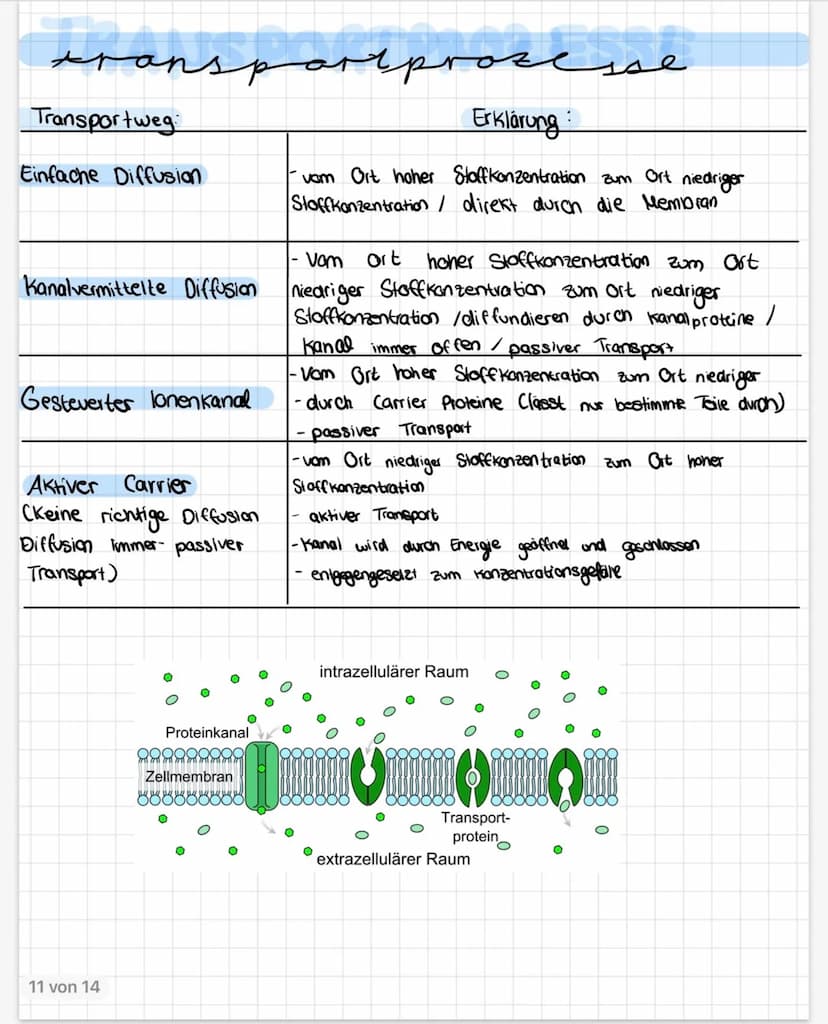 TRANSPORTPROZESSE
transportprozesse
Transportweg:
Erklärung:
Einfache Diffusion
- vom Ort hoher Stoffkonzentration zum Ort niedriger
Stoffkonzentration / direkt durch die Membran
Kanalvermittelte Diffusion
- Vom Ort hoher Stoffkonzentration zum Ort
niedriger Stoffkonzentration zum Ort niedriger
Stoffkonzentration / diffundieren durch Kanalproteine /
Kanal immer offen / passiver Transport
Gesteuerter Ionenkanal
- Vom Ort hoher Stoffkonzentration zum Ort niedriger
- durch Carrier Proteine (lässt nur bestimme Teile durch)
- passiver Transport
Aktiver Carrier
(Keine richtige Diffusion
Diffusion immer- passiver
Transport)
- vom Ort niedriger Stoffkonzentration zum Ort hoher
Stoffkonzentration
- aktiver Transport
- Kanal wird durch Energie geöffnet und geschlossen
- entgegengesetzt zum Konzentrationsgefälle
intrazellulärer Raum
Proteinkanal
Zellmembran
Transport-
protein
extrazellulärer Raum
11 von 14